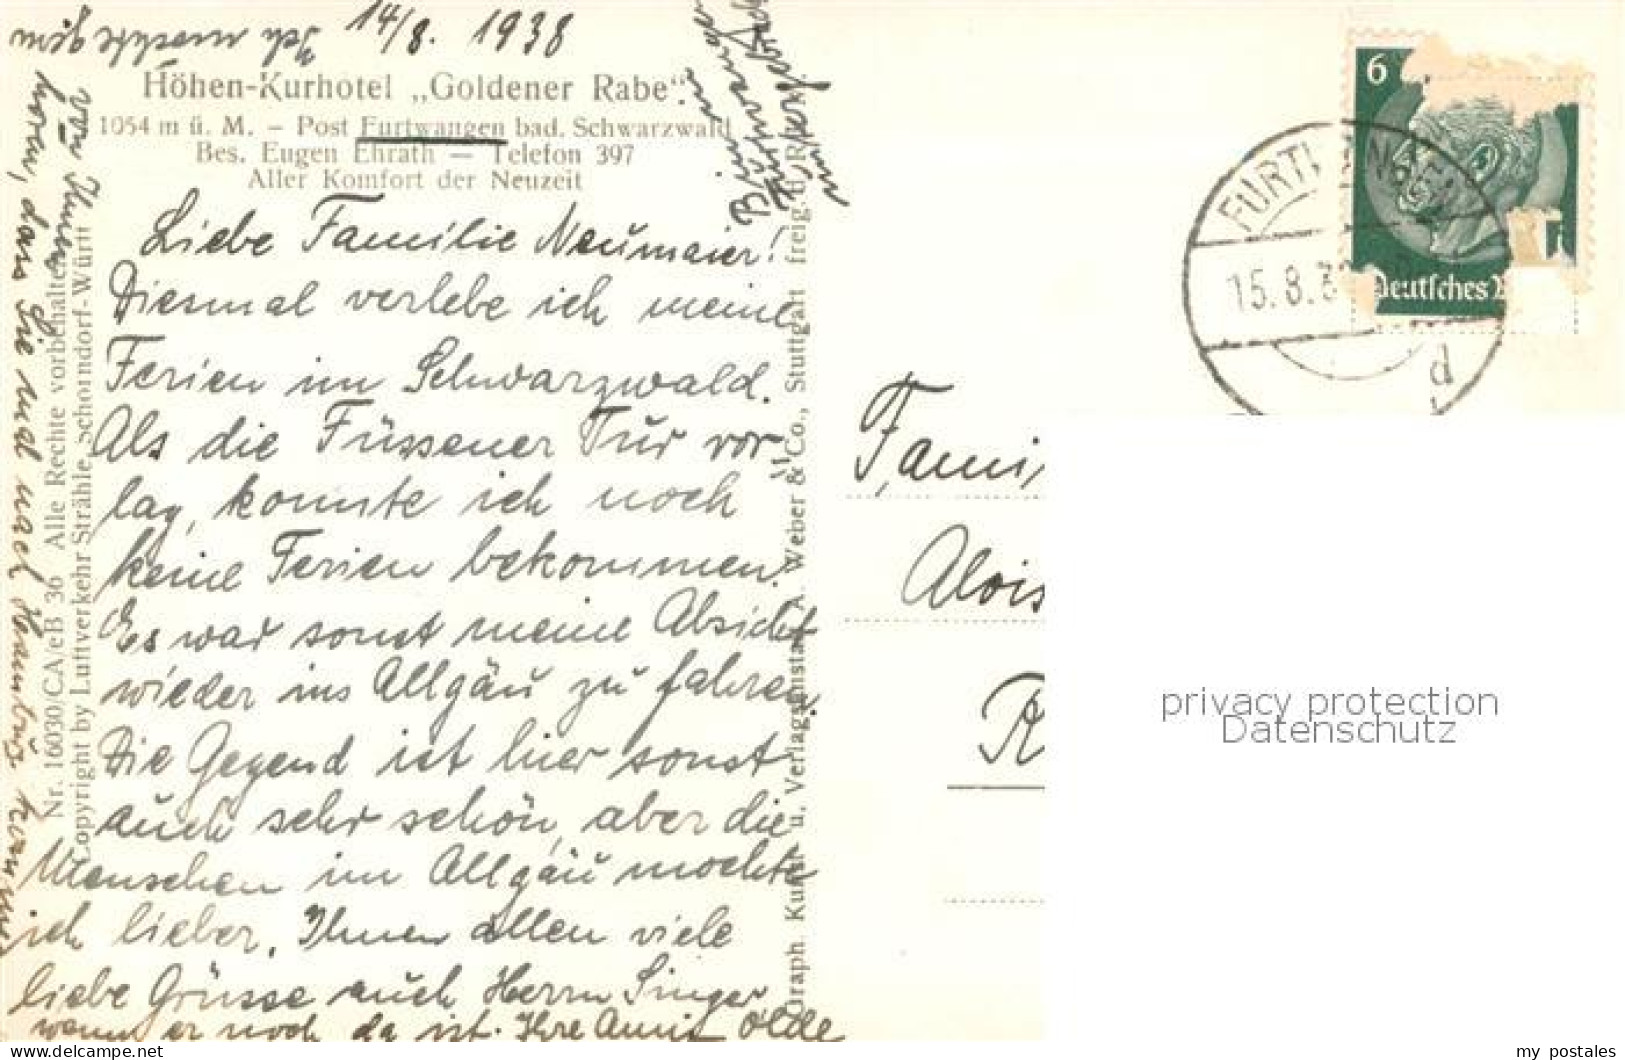 14/8. 1938
Höhen-Kurhotel „Goldener Rabe“
1054 m ü. M. — Post Furtwangen bad. Schwarzwald
Bes. Eugen Ehrath — Telefon 397
Aller Komfort der Neuzeit
Liebe Familie Neumaier!
Diesmal verlebe ich meine
Ferien im Schwarzwald.
Als die Füssener Tur vor
lag, konnte ich noch
keine Ferien bekommen.
Es war sonst meine Absicht
wieder ins Allgäu zu fahren.
Die Gegend ist hier sonst
auch sehr schön, aber die
Menschen im Allgäu mochte
ich lieber. Ihnen allen viele
liebe Grüsse auch Herrn Singer
wenn er noch da ist. Ihre Anni Olde
Ich möchte gern
von Ihnen
hören, dass Sie mal nach Hamburg kommen
Bin in
Furtwangen
Nr. 16030/CA/eB 36 Alle Rechte vorbehalten
Copyright by Luftverkehr Strähle, Schorndorf-Württ
Graph. Kunst- u. Verlagsanstalt A. Weber & Co., Stuttgart
freig. d. R
6
Deutsches
FURTWANGEN
15.8.3
d
Fami
Alois
R
privacy protection
Datenschutz
my postales